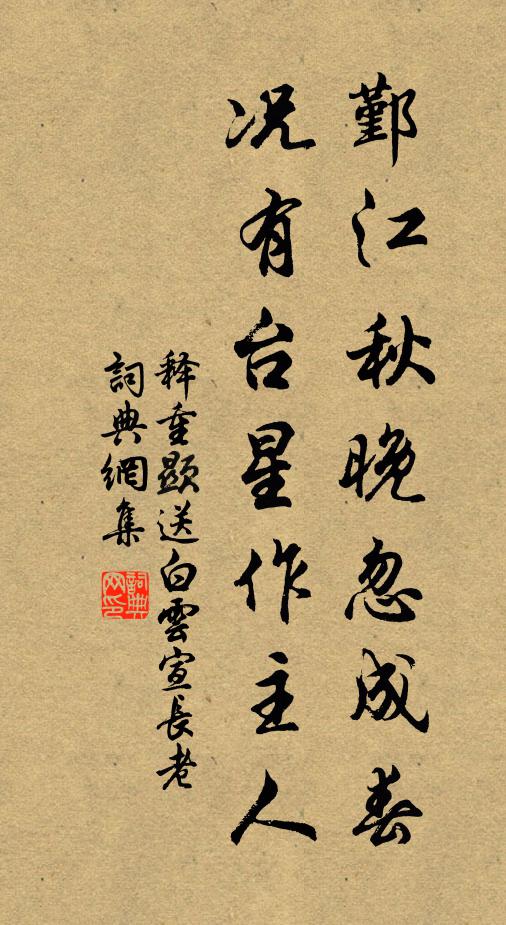 鄞江秋晚忽成春
况有台星作主人
释重顯送白雲宣長老
詞典網集
詞典网印